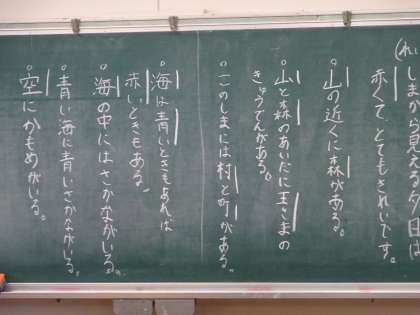 (れい
しまから見る夕日は
赤くて、とてもきれいです。
・山の近くに森がある。
・山と森のあいだに王さまの
きゅうでんがある。
・このしまには村と町がある。
・海は青いときもあれば
赤いときもある。
・海の中にはさかながいる。
・青い海に青いさかながいる。
・空にかもめがいる。